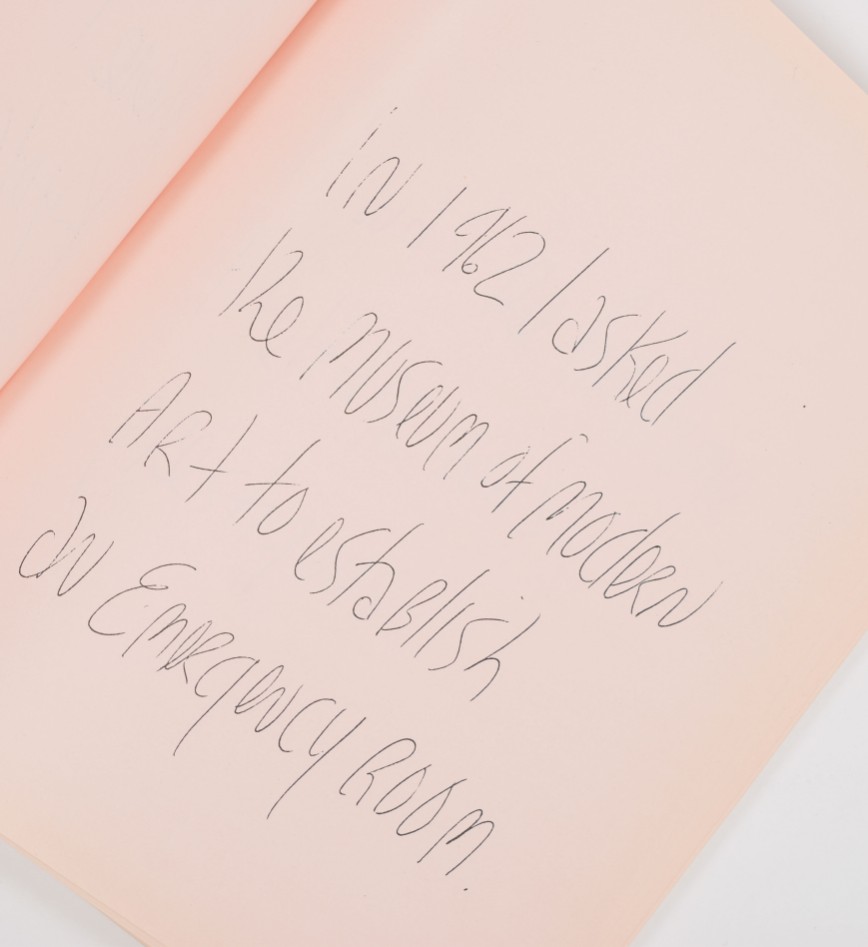 IN 1962 I asked
the museum of modern
ARt to establish
an Emergency Room.